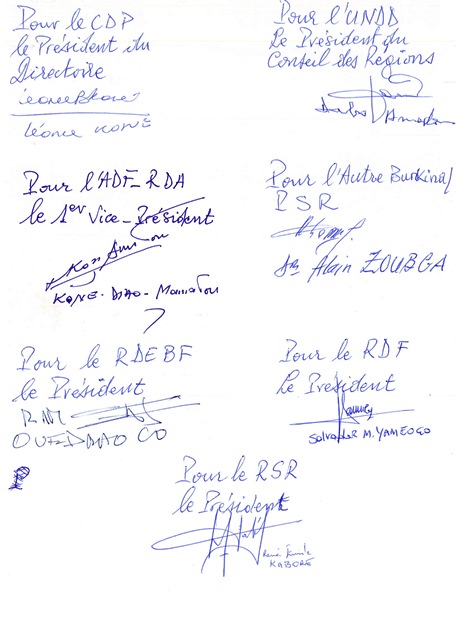 Pour le CDP
le Président du
Directoire
Léonce KONE
Pour l'UNDD
Le Président du
Conseil des Régions
Pour l'ADF_RDA
le 1er Vice_Président
KONE
Pour l'Autre Burkina/
PSR
Dr Alain ZOUBGA
Pour le RDEBF
le Président
OUEDRAOGO
Pour le RDF
Le Président
Salvador M. YAMEOGO
Pour le RSR
le Président
René Emile
KABORE